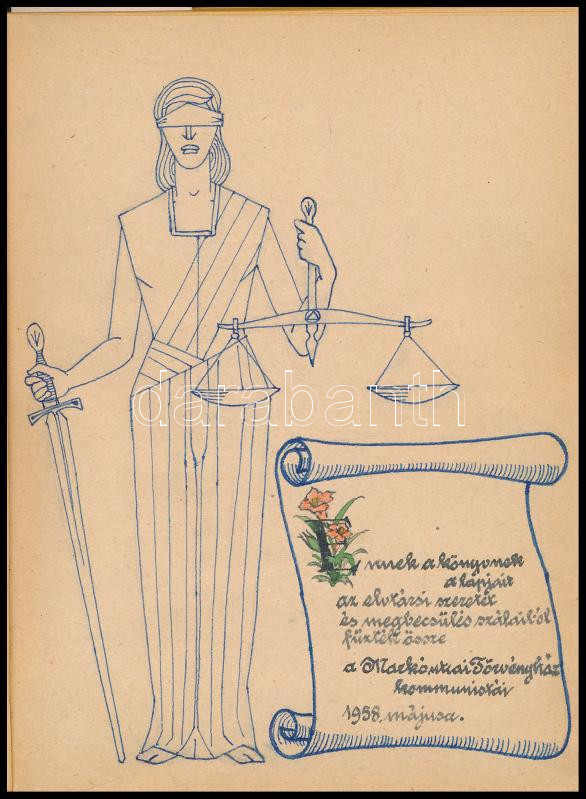 Ennek a könyvnek
a lapjait
az elvtársi szeretet
és megbecsülés szálaiból
fűzték össze
a Markóutcai Törvényház
kommunistái
1958. májusa.
darabanth